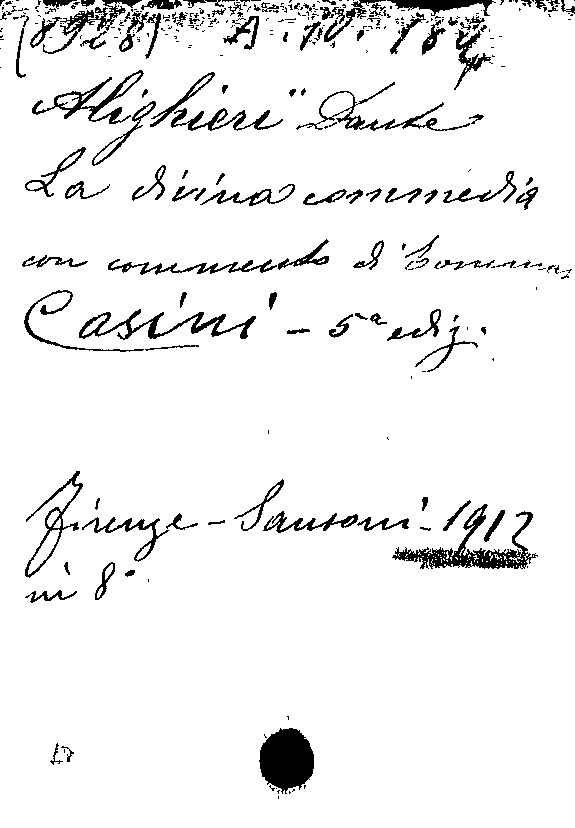 (8928) A. IV. 184
Alighieri Dante
La divina commedia
con commento di Tommas
Casini - 5ª ediz.
Firenze - Sansoni - 1912
in 8°